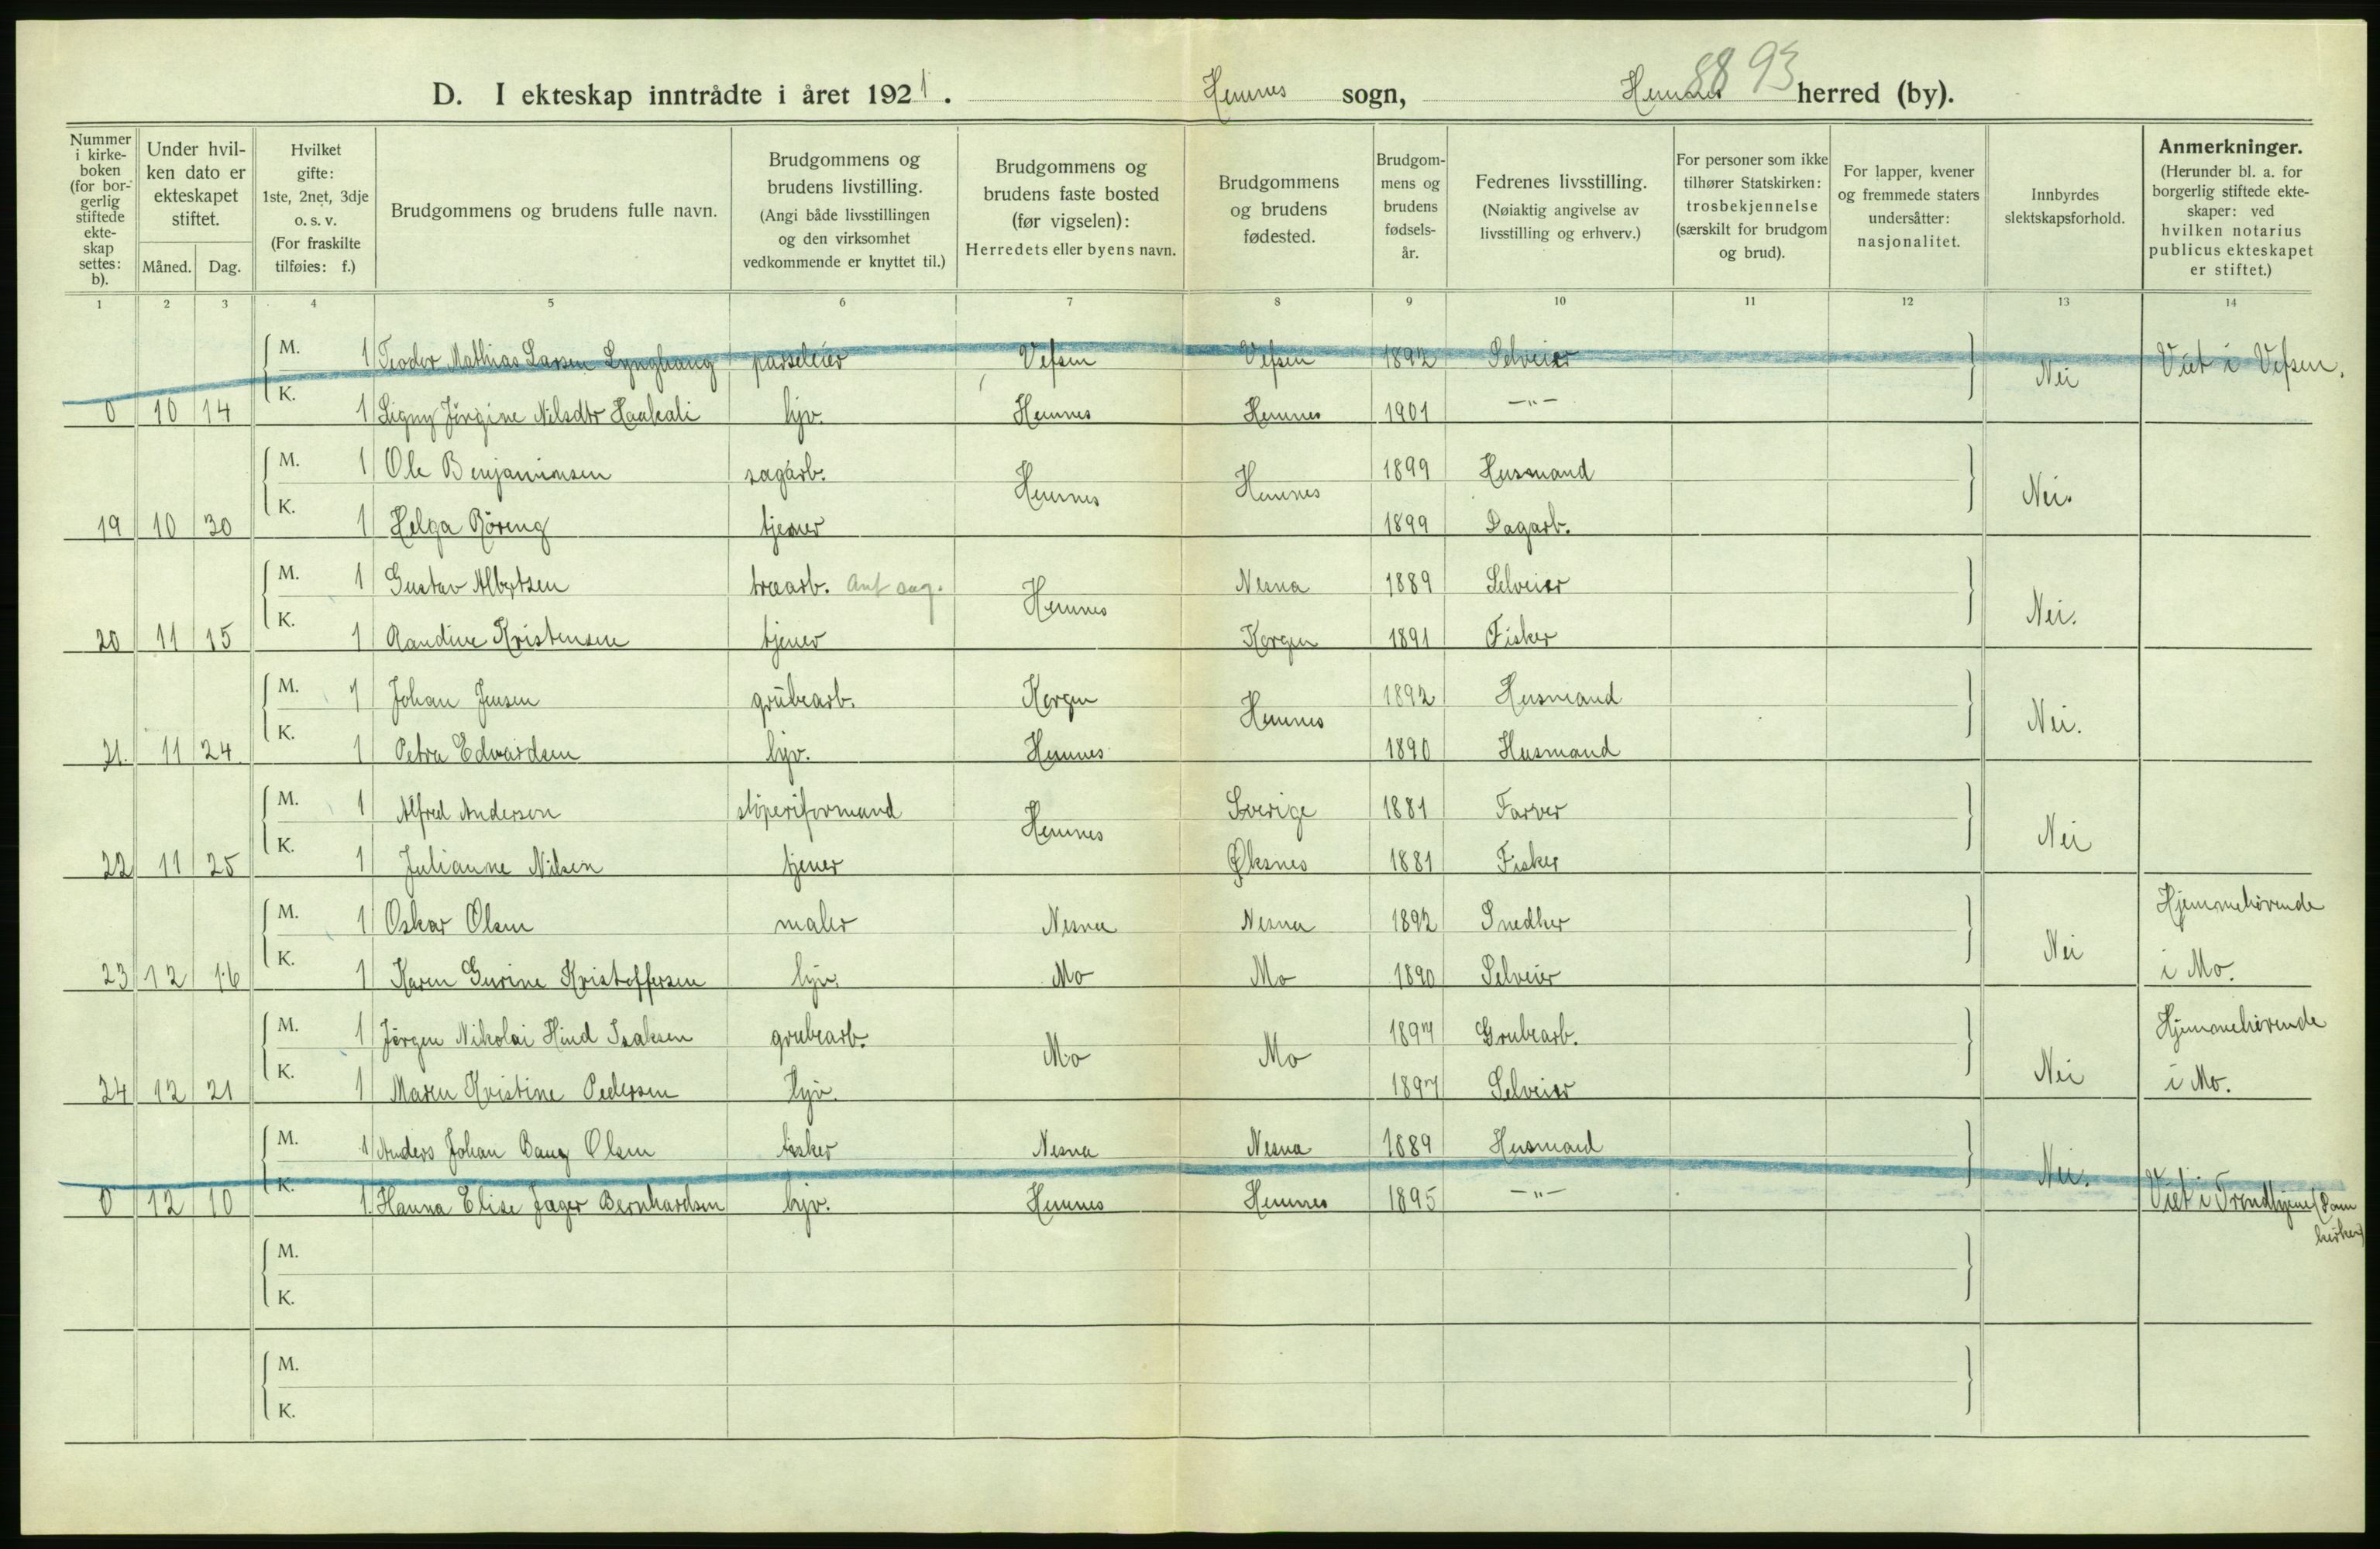 88 93
D. I ekteskap inntrådte i året 1921. Hemnes sogn, Hemnes herred (by).
Nummer i kirke-boken (for bor-gerlig stiftede ekte-skap settes: b).
Under hvil-ken dato er ekteskapet stiftet.
Måned. Dag.
Hvilket gifte: 1ste, 2net, 3dje o. s. v. (For fraskilte tilføies: f.)
Brudgommens og brudens fulle navn.
Brudgommens og brudens livstilling. (Angi både livsstillingen og den virksomhet vedkommende er knyttet til.)
Brudgommens og brudens faste bosted (før vigselen): Herredets eller byens navn.
Brudgommens og brudens fødested.
Brudgom-mens og brudens fødsels-år.
Fedrenes livsstilling. (Nøiaktig angivelse av livsstilling og erhverv.)
For personer som ikke tilhører Statskirken: trosbekjennelse (særskilt for brudgom og brud).
For lapper, kvener og fremmede staters undersåtter: nasjonalitet.
Innbyrdes slektskapsforhold.
Anmerkninger. (Herunder bl. a. for borgerlig stiftede ekte-skaper: ved hvilken notarius publicus ekteskapet er stiftet.)
1 2 3 4 5 6 7 8 9 10 11 12 13 14
M. 1 Teodor Mathias Larsen parseleier Vefsen Vefsen 1892 Selveier Nei Viet i Vefsen.
0 10 14 K. 1 Signy Jörgine Nilsdtr hjv. Hemnes Hemnes 1901 —"—
M. 1 Ole Benjaminsen sagarb. Hemnes Hemnes 1899 Husmand Nei.
19 10 30 K. 1 Helga Röreng tjener 1899 Dagarb.
M. 1 Gustav Albertsen træarb. Hemnes Nesna 1889 Selveier Nei.
20 11 15 K. 1 Randine Kristensen tjener Korgen 1891 Fisker
M. 1 Johan Jensen grubearb. Korgen Hemnes 1892 Husmand Nei.
21. 11 24 K. 1 Petra Edvardsen hjv. Hemnes 1890 Husmand
M. 1 Alfred Anderson stöperiformand Hemnes Sverige 1881 Farver Nei
22 11 25 K. 1 Julianne Nilsen tjener Øksnes 1881 Fisker
M. 1 Oskar Olsen maler Nesna Nesna 1892 Snedker Nei Hjemmehörende
23 12 16 K. 1 Karen Gurine Kristoffersen hjv. Mo Mo 1890 Selveier i Mo.
M. 1 Jörgen Nikolai Hind Isaksen grubearb. Mo Mo 1897 Grubearb. Nei Hjemmehörende
24 12 21 K. 1 Maren Kristine Pedersen hjv. 1897 Selveier i Mo.
M. 1 Anders Johan Bang Olsen fisker Nesna Nesna 1889 Husmand Nei.
0 12 10 K. 1 Hanna Elise Jager Bernhardsen hjv. Hemnes Hemnes 1895 —"— Viet i Trondhjem (Dom
kirken)
M.
K.
M.
K.